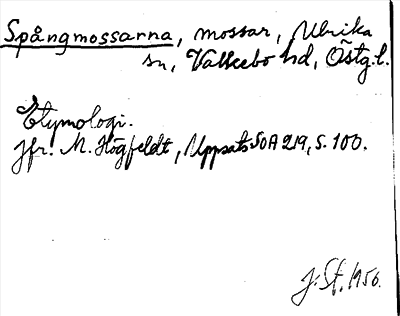 Spångmossarna, mossar, Ulrika
sn, Valkebo hd, Östg.l.
Etymologi.
Jfr. M. Högfeldt, Uppsats SOA 219, s. 100.
J: St. 1956.